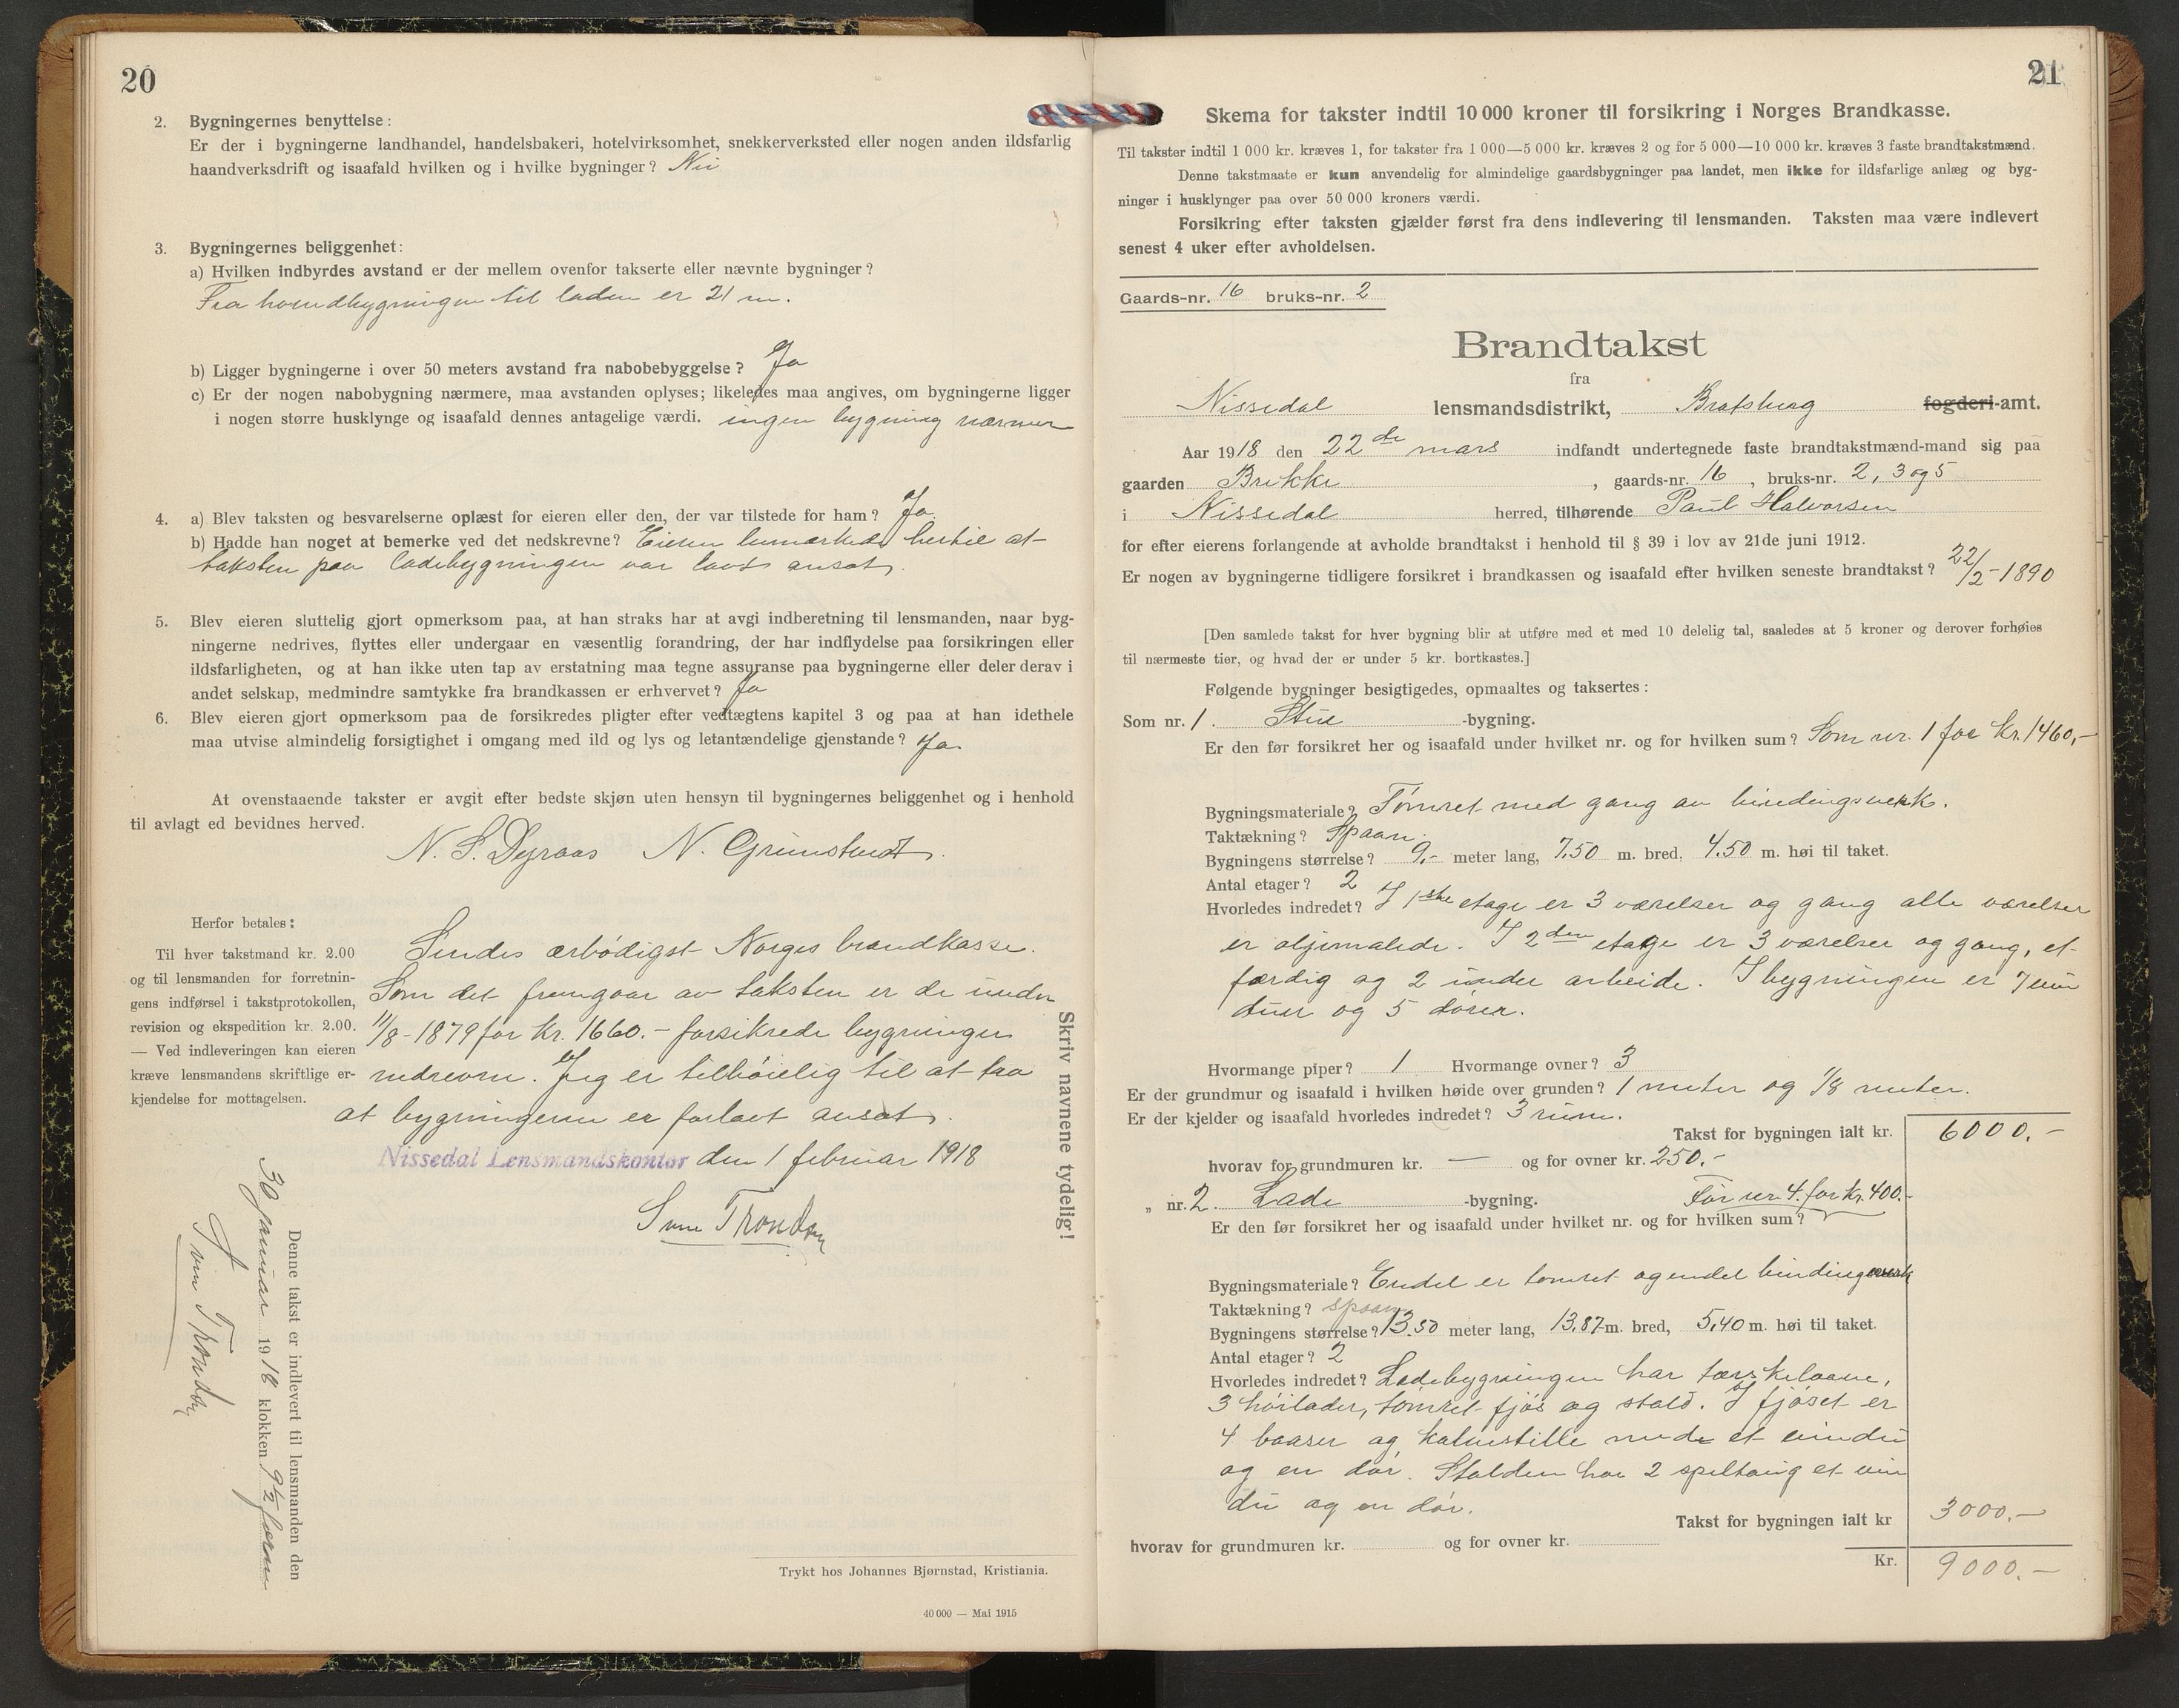 20
2. Bygningernes benyttelse:
Er der i bygningerne landhandel, handelsbakeri, hotelvirksomhet, snekkerverksted eller nogen anden ildsfarlig
haandverksdrift og isaafald hvilken og i hvilke bygninger? Nei
3. Bygningernes beliggenhet:
a) Hvilken indbyrdes avstand er der mellem ovenfor takserte eller nævnte bygninger?
Fra hovedbygningen til laden er 21 m.
b) Ligger bygningerne i over 50 meters avstand fra nabobebyggelse? Ja
c) Er der nogen nabobygning nærmere, maa avstanden oplyses; likeledes maa angives, om bygningerne ligger
i nogen større husklynge og isaafald dennes antagelige værdi. ingen bygning nærmer
4. a) Blev taksten og besvarelserne oplæst for eieren eller den, der var tilstede for ham? Ja.
b) Hadde han noget at bemerke ved det nedskrevne? Eieren bemærkede hertil at
taksten paa ladebygningen var lavt ansat.
5. Blev eieren sluttelig gjort opmerksom paa, at han straks har at avgi indberetning til lensmanden, naar byg-
ningerne nedrives, flyttes eller undergaar en væsentlig forandring, der har indflydelse paa forsikringen eller
ildsfarligheten, og at han ikke uten tap av erstatning maa tegne assuranse paa bygningerne eller deler derav i
andet selskap, medmindre samtykke fra brandkassen er erhvervet? Ja
6. Blev eieren gjort opmerksom paa de forsikredes pligter efter vedtægtens kapitel 3 og paa at han idethele
maa utvise almindelig forsigtighet i omgang med ild og lys og letantændelige gjenstande? Ja.
At ovenstaaende takster er avgit efter bedste skjøn uten hensyn til bygningernes beliggenhet og i henhold
til avlagt ed bevidnes herved.
N. S. Dyraas N. Grimstvedt.
Herfor betales:
Til hver takstmand kr. 2.00
og til lensmanden for forretnin-
gens indførsel i takstprotokollen,
revision og ekspedition kr. 2.00.
— Ved indleveringen kan eieren
kræve lensmandens skriftlige er-
kjendelse for mottagelsen.
Sendes ærbødigst Norges brandkasse.
Som det fremgaar av taksten er de under
11/8-1879 for kr. 1660.- forsikrede bygninger
nedrevne. Jeg er tilbøielig til at tro
at bygningerne er forlavt ansat.
Nissedal Lensmandskontor den 1 februar 1918
Sven Trondsen
Skriv navnene tydelig!
Denne takst er indlevert til lensmanden den
30 januar 1918 klokken 9½ form
Sven Trondsen
Trykt hos Johannes Bjørnstad, Kristiania.
40 000 — Mai 1915
21
Skema for takster indtil 10 000 kroner til forsikring i Norges Brandkasse.
Til takster indtil 1 000 kr. kræves 1, for takster fra 1 000—5 000 kr. kræves 2 og for 5 000—10 000 kr. kræves 3 faste brandtakstmænd.
Denne takstmaate er kun anvendelig for almindelige gaardsbygninger paa landet, men ikke for ildsfarlige anlæg og byg-
ninger i husklynger paa over 50 000 kroners værdi.
Forsikring efter taksten gjælder først fra dens indlevering til lensmanden. Taksten maa være indlevert
senest 4 uker efter avholdelsen.
Gaards-nr. 16 bruks-nr. 2
Brandtakst
fra
Nissedal lensmandsdistrikt, Bratsberg fogderi-amt.
Aar 1918 den 22de mars indfandt undertegnede faste brandtakstmænd-mand sig paa
gaarden Brekke, gaards-nr. 16, bruks-nr. 2, 3 og 5
i Nissedal herred, tilhørende Paul Halvorsen
for efter eierens forlangende at avholde brandtakst i henhold til § 39 i lov av 21de juni 1912.
Er nogen av bygningerne tidligere forsikret i brandkassen og isaafald efter hvilken seneste brandtakst? 22/2-1890
[Den samlede takst for hver bygning blir at utføre med et med 10 delelig tal, saaledes at 5 kroner og derover forhøies
til nærmeste tier, og hvad der er under 5 kr. bortkastes.]
Følgende bygninger besigtigedes, opmaaltes og taksertes:
Som nr. 1. Stue -bygning.
Er den før forsikret her og isaafald under hvilket nr. og for hvilken sum? Som nr. 1 for kr. 1460,-
Bygningsmateriale? Tømret med gang av bindingsverk.
Taktækning? Spaan.
Bygningens størrelse? 9,- meter lang, 7,50 m. bred, 4.50 m. høi til taket.
Antal etager? 2
Hvorledes indredet? I 1ste etage er 3 værelser og gang alle værelser
er oljemalede. I 2den etage er 3 værelser og gang, et
færdig og 2 under arbeide. I bygningen er 7 vin
duer og 5 dører.
Hvormange piper? 1 Hvormange ovner? 3
Er der grundmur og isaafald i hvilken høide over grunden? 1 meter og 1/8 meter.
Er der kjelder og isaafald hvorledes indredet? 3 rum.
Takst for bygningen ialt kr. 6000.-
hvorav for grundmuren kr. — og for ovner kr. 250.-
„ nr. 2. Lade -bygning. Før nr 4. for kr. 400.-
Er den før forsikret her og isaafald under hvilket nr. og for hvilken sum?
Bygningsmateriale? Endel er tømret og endel bindingsverk
Taktækning? spaan
Bygningens størrelse? 13.50 meter lang, 13,87 m. bred, 5,40 m. høi til taket.
Antal etager? 2
Hvorledes indredet? Ladebygningen har tærskelaave,
3 høilader, tømret fjøs og stald. I fjøset er
4 baaser og kalvestille med et vindu
og en dør. Stalden har 2 spiltaug et vin
du og en dør.
Takst for bygningen ialt kr 3000.-
hvorav for grundmuren kr. og for ovner kr.
Kr. 9000.-